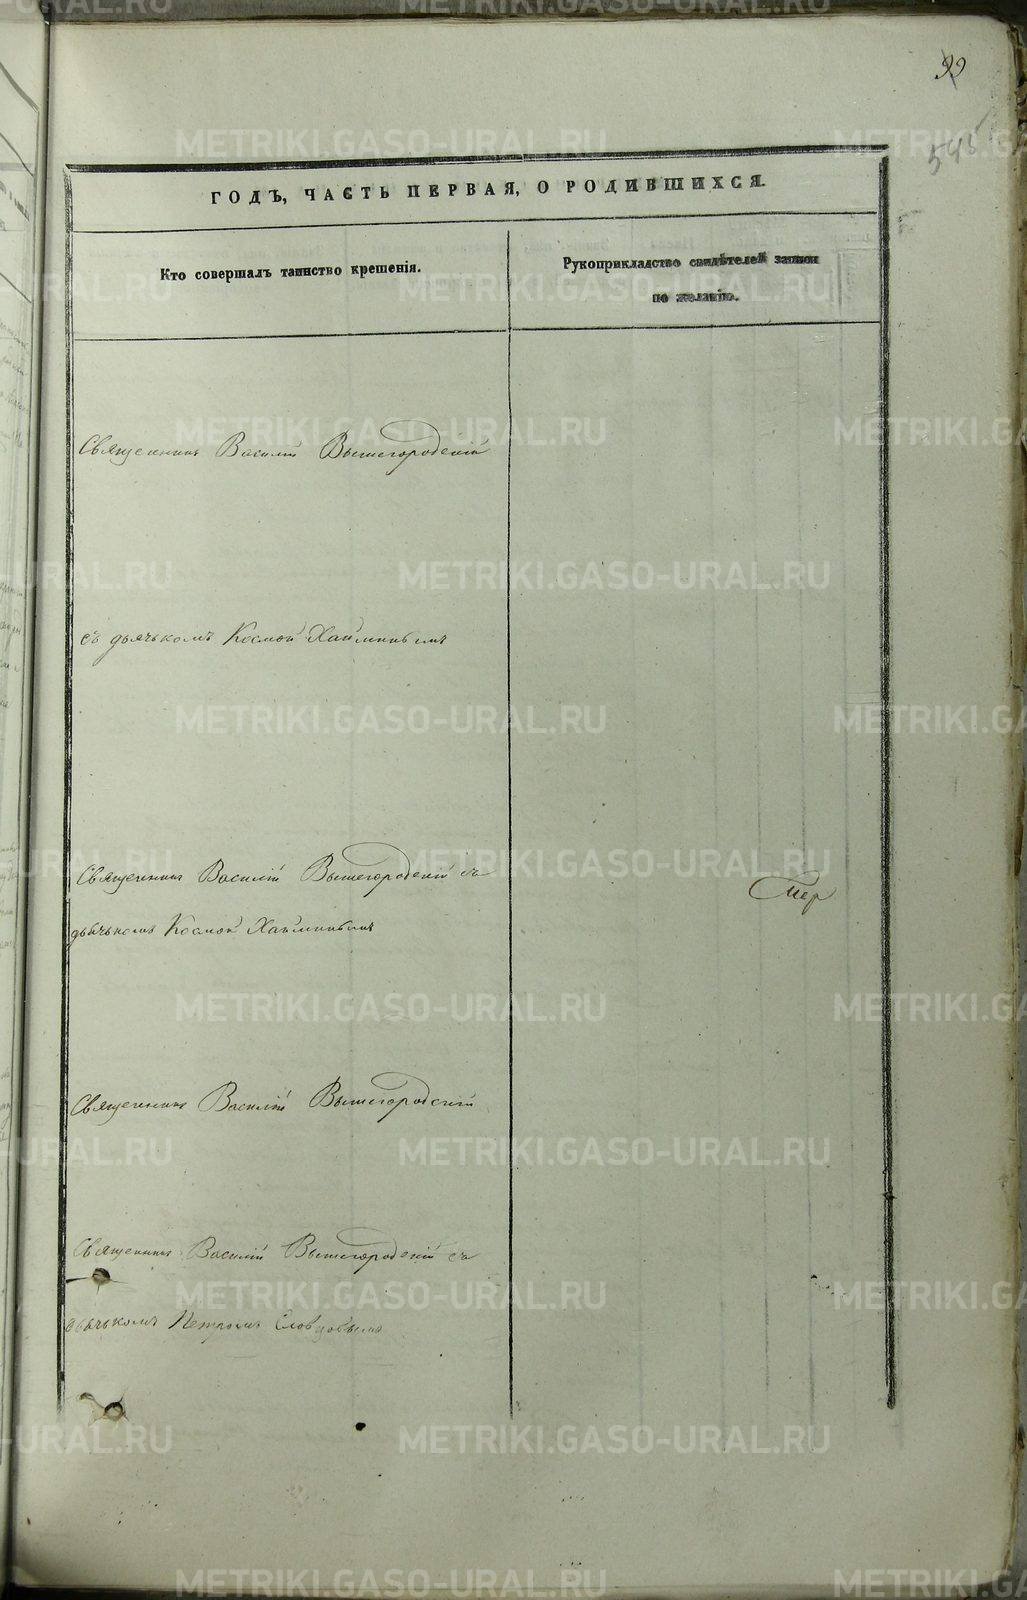 99
545
ГОДЪ, ЧАСТЬ ПЕРВАЯ, О РОДИВШИХСЯ.
Кто совершалъ таинство крещенія.
Рукоприкладство свидѣтелей записи
по желанію.
Священникъ Василій Вышегородскій
съ дьячькомъ Космой Хайминымъ
Священникъ Василій Вышегородскій съ
дьячькомъ Космой Хайминымъ
Умер
Священникъ Василій Вышегородскій
Священникъ Василій Вышегородскій съ
дьячькомъ Петромъ Словцовымъ
METRIKI.GASO-URAL.RU